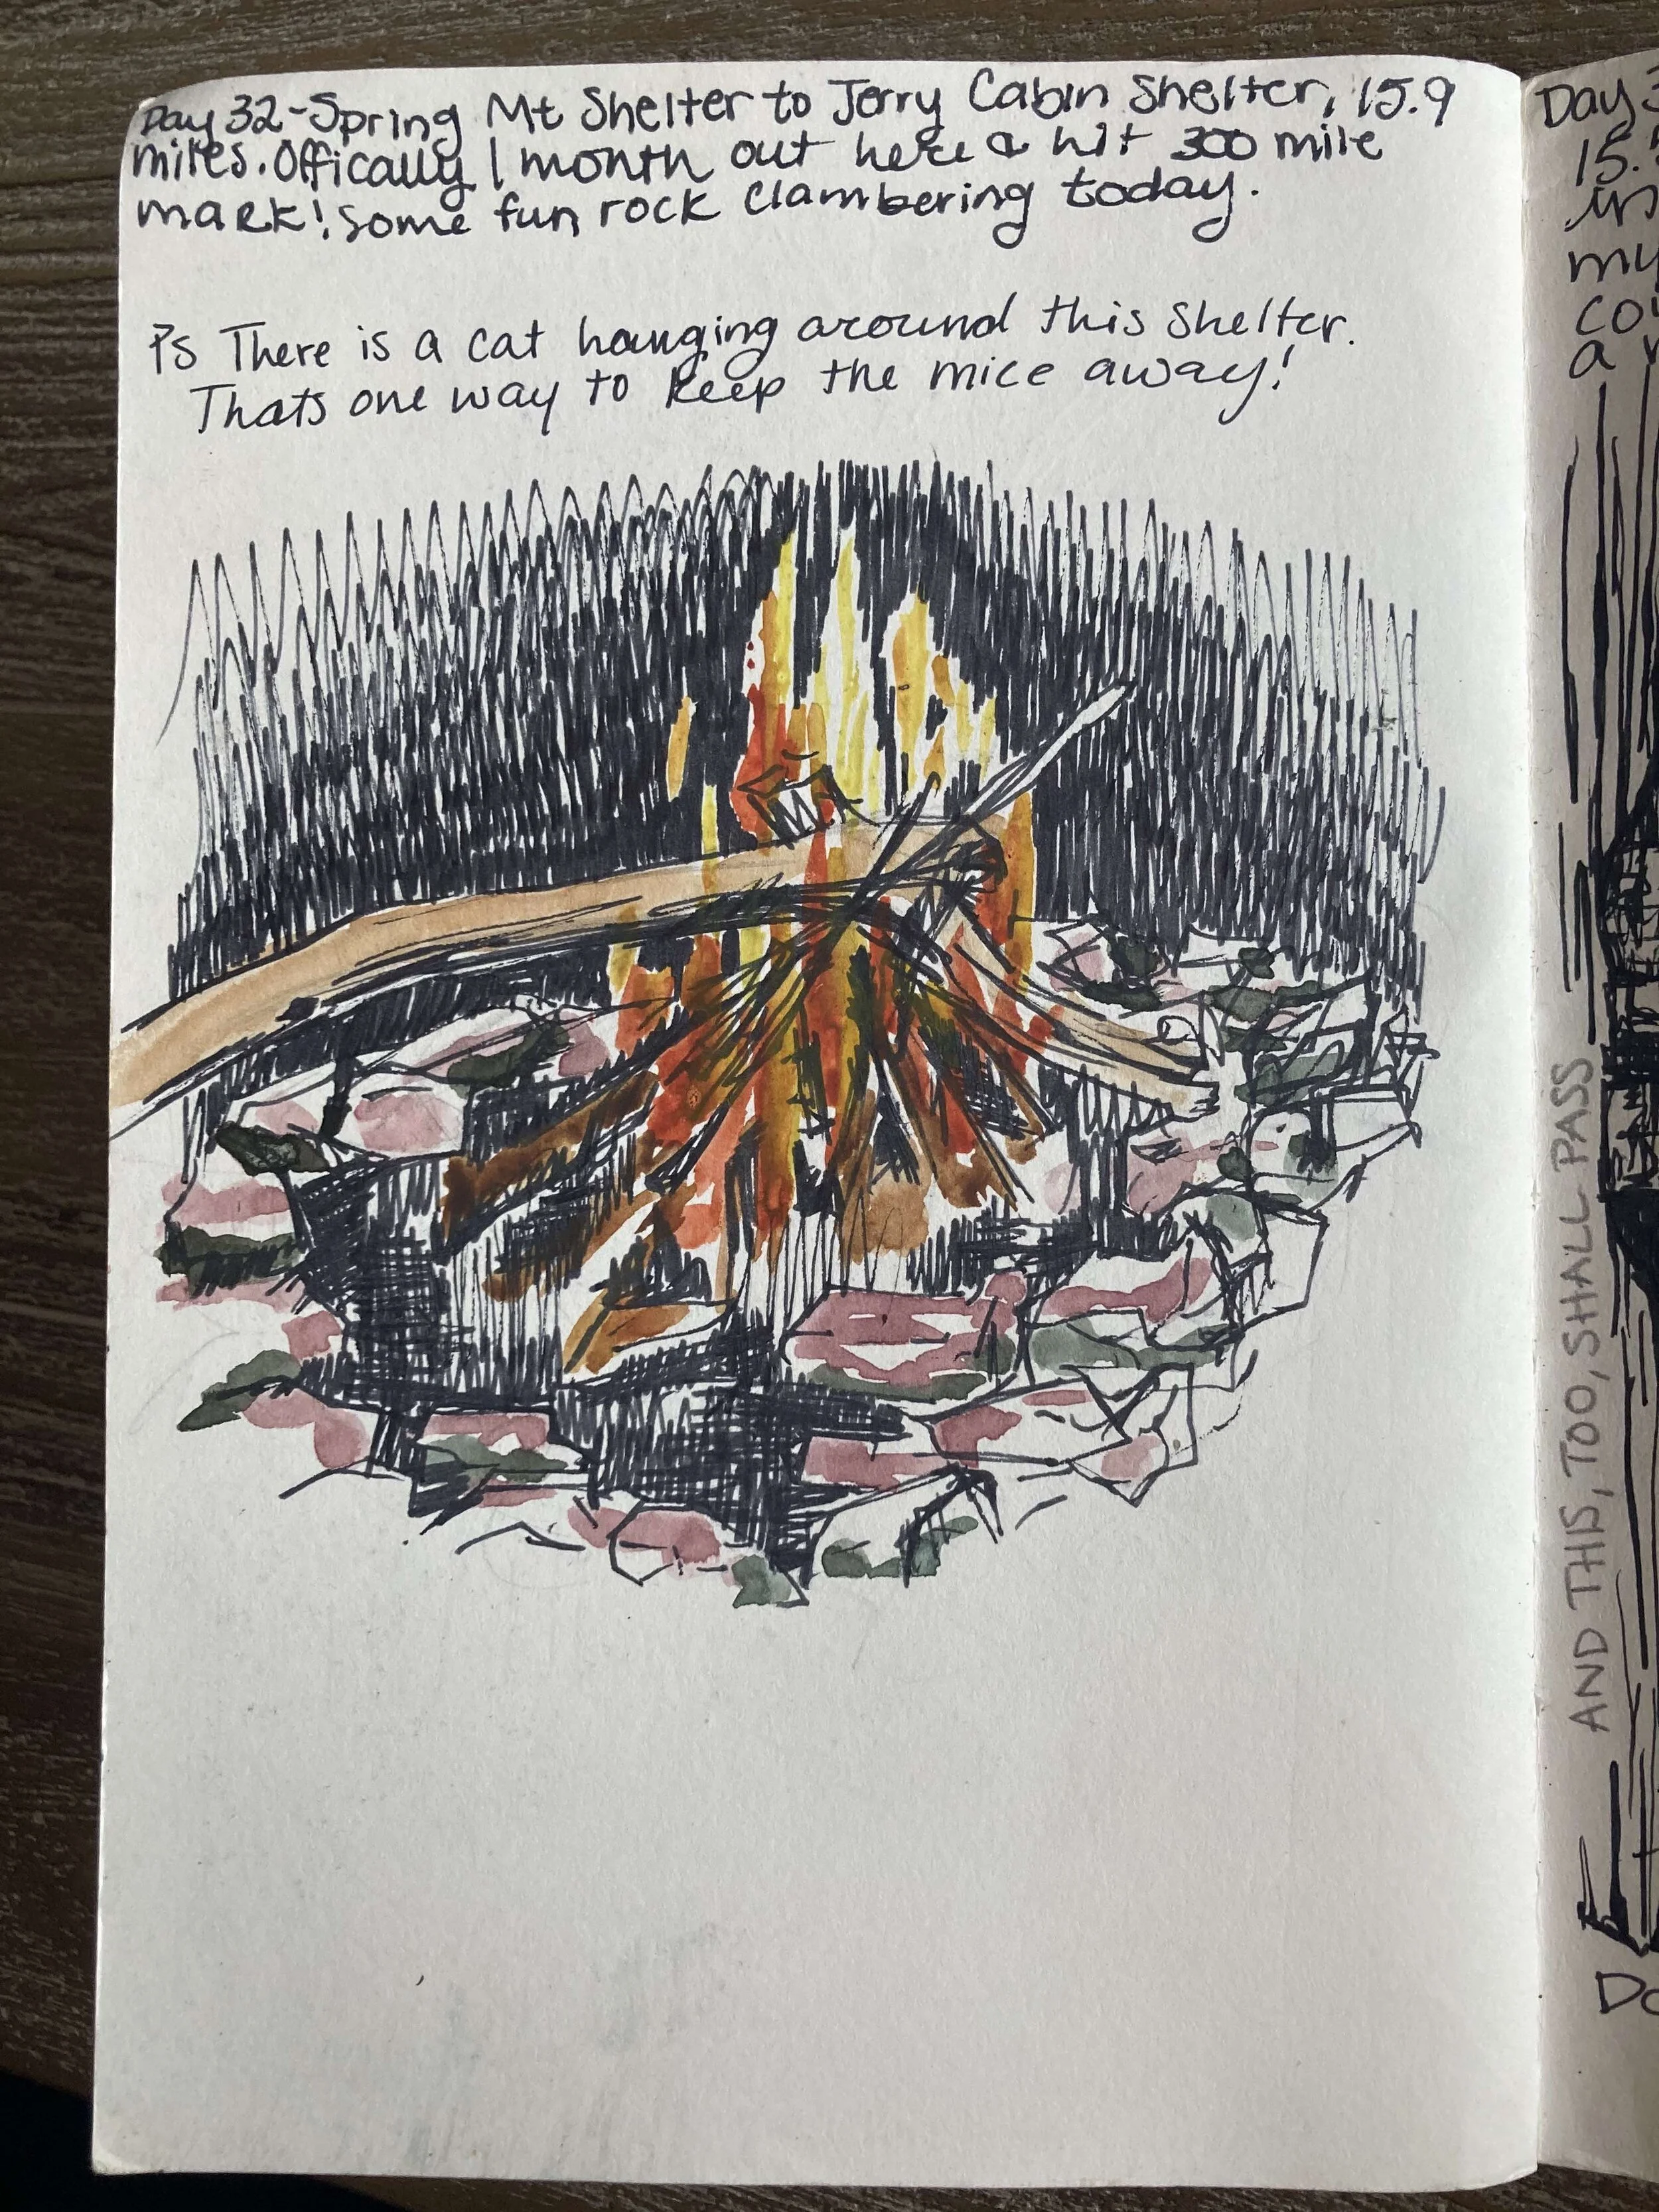 Day 32-Spring Mt Shelter to Jerry Cabin Shelter, 15.9
miles. Offically 1 month out here & hit 300 mile
mark! Some fun rock clambering today.
Ps There is a cat hanging around this shelter.
Thats one way to keep the mice away!
Day 3
15.
my
a
AND THIS, TOO, SHALL PASS